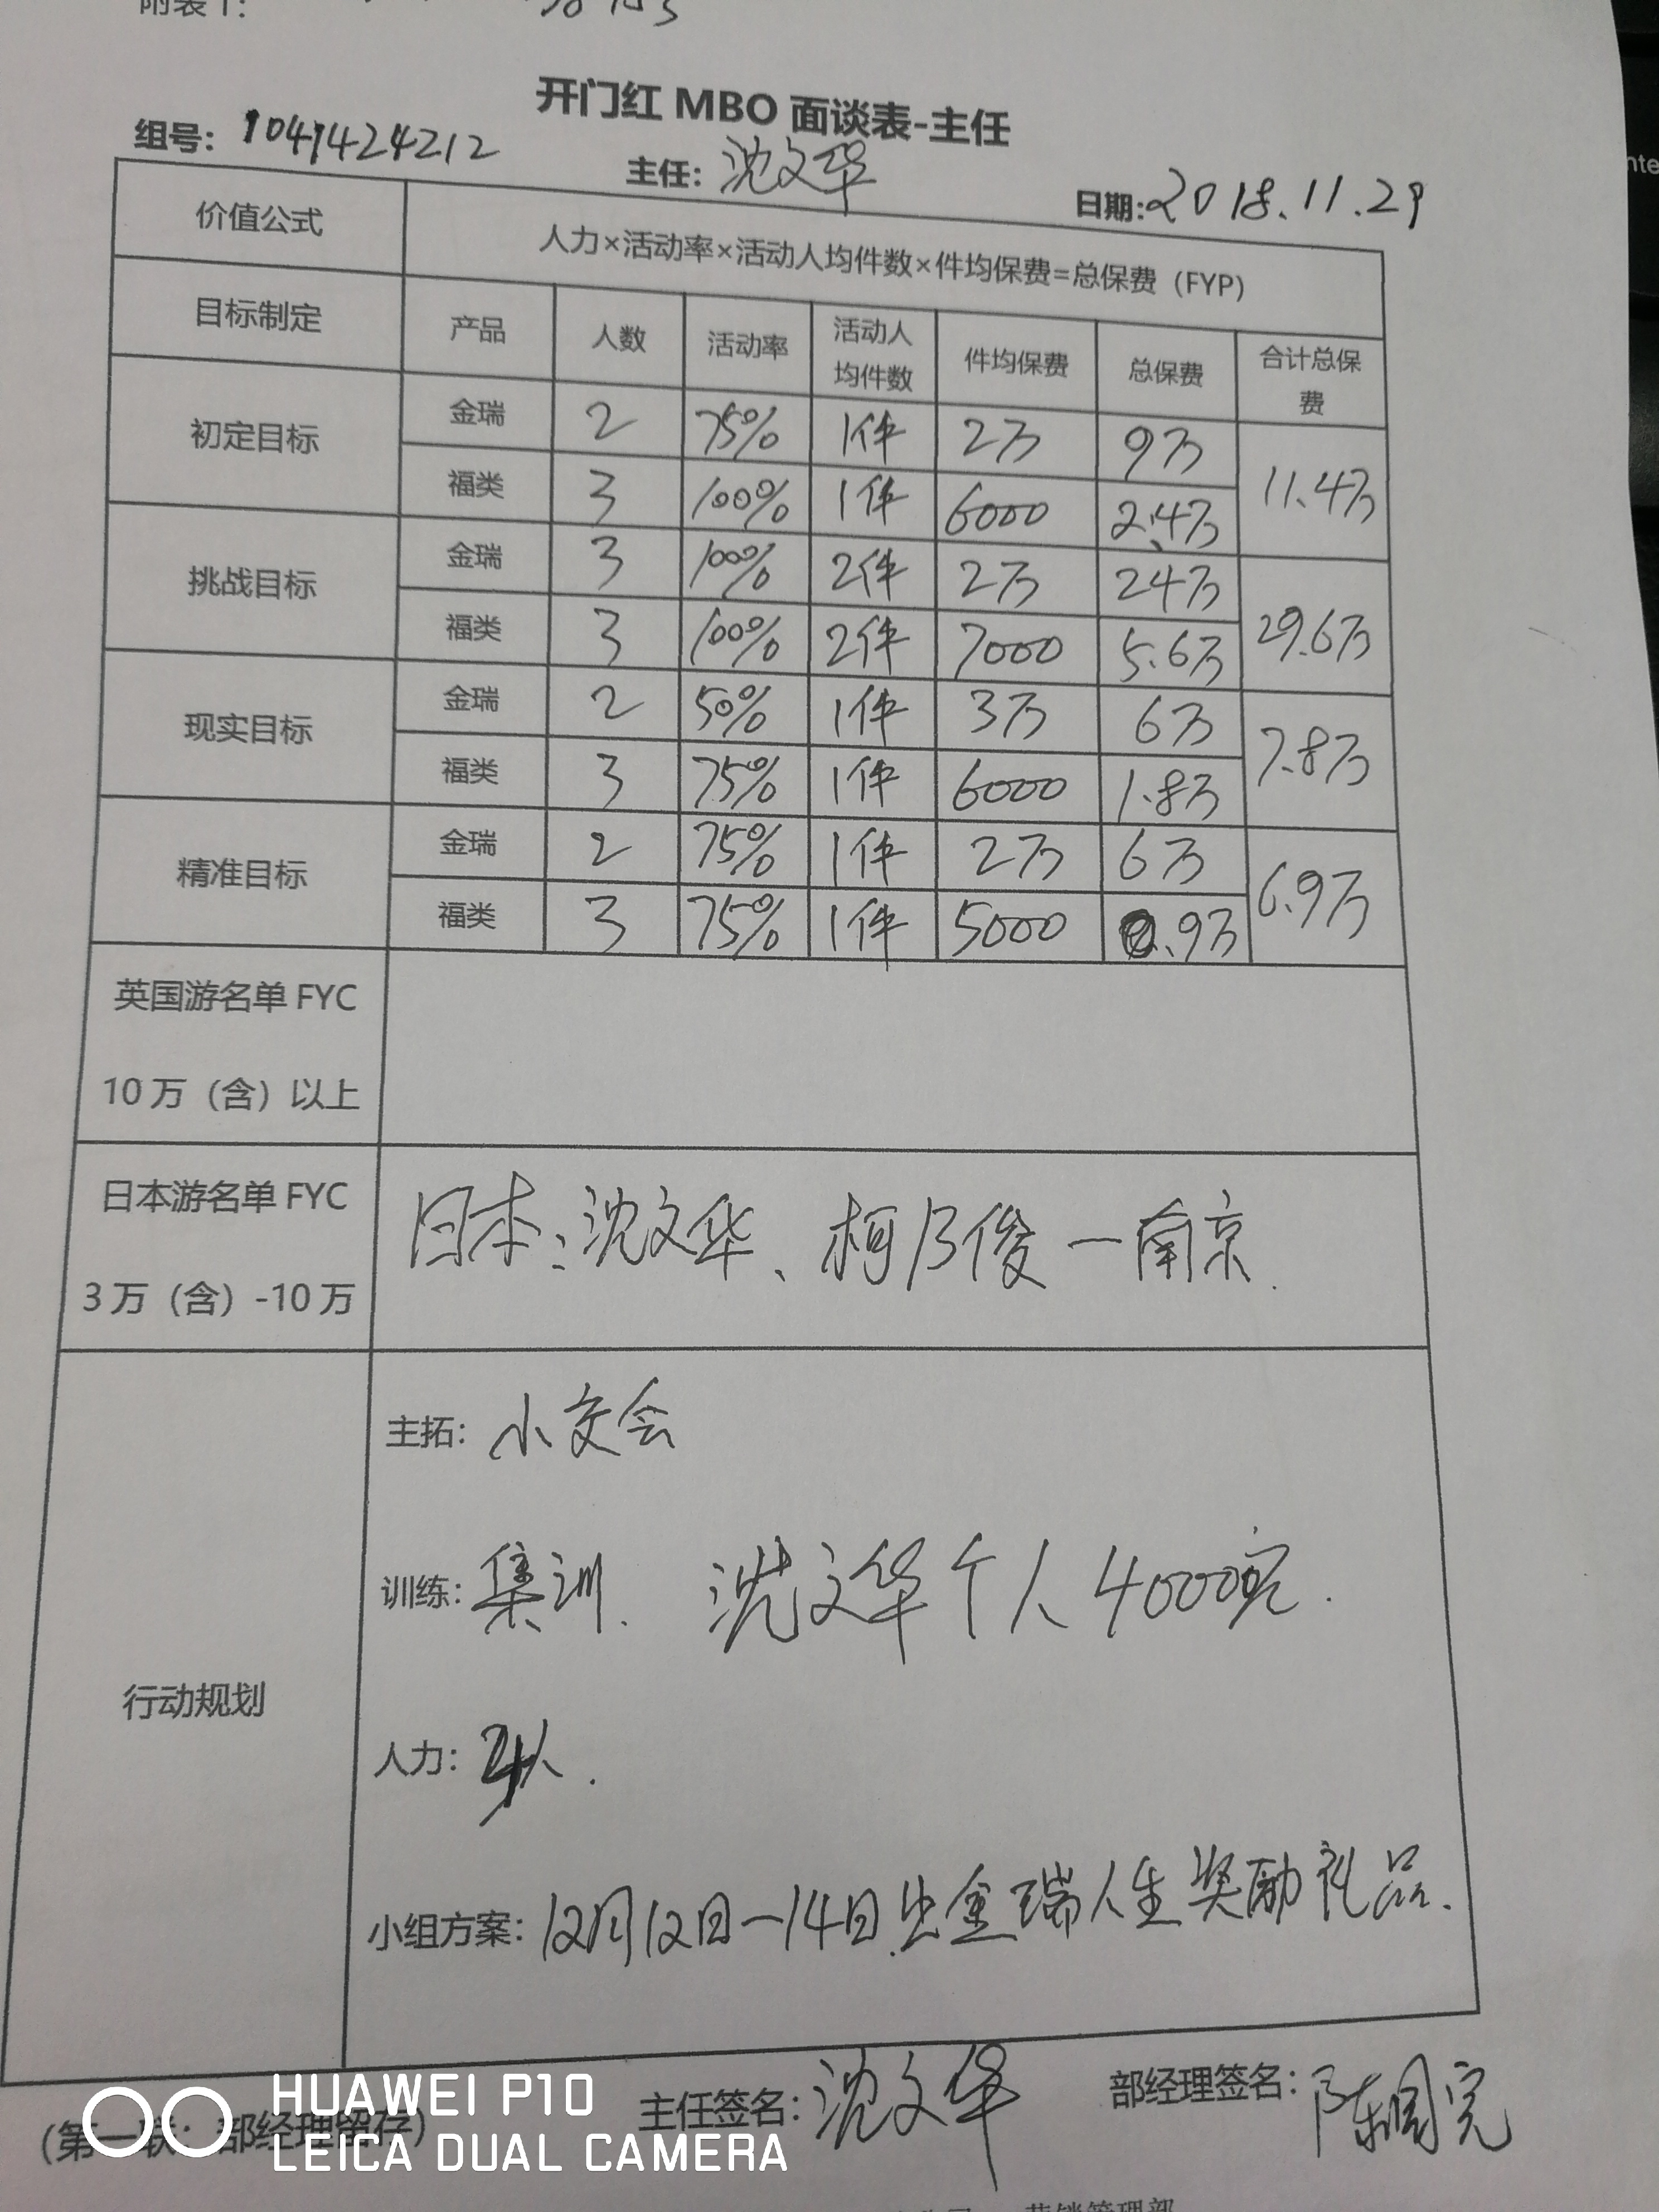 附表1:
开门红 MBO 面谈表-主任
组号: 1041424212 主任: 沈文华 日期: 2018.11.29
价值公式 人力×活动率×活动人均件数×件均保费=总保费（FYP）
目标制定 产品 人数 活动率 活动人均件数 件均保费 总保费 合计总保费
初定目标 金瑞 2 75% 1件 2万 9万 11.4万
福类 3 100% 1件 6000 2.4万
挑战目标 金瑞 3 100% 2件 2万 24万 29.6万
福类 3 100% 2件 7000 5.6万
现实目标 金瑞 2 50% 1件 3万 6万 7.8万
福类 3 75% 1件 6000 1.8万
精准目标 金瑞 2 75% 1件 2万 6万 6.9万
福类 3 75% 1件 5000 0.9万
英国游名单 FYC
10 万（含）以上
日本游名单 FYC
3 万（含）-10 万
日本: 沈文华、柯乃俊一南京.
行动规划
主拓: 小交会
训练: 集训. 沈文华个人4000元.
人力: 人.
小组方案: 12月12日一14日出金瑞人生奖励礼品.
主任签名: 沈文华 部经理签名: 陈
(第一联: 部经理留存)
HUAWEI P10
LEICA DUAL CAMERA
营销管理部
nte